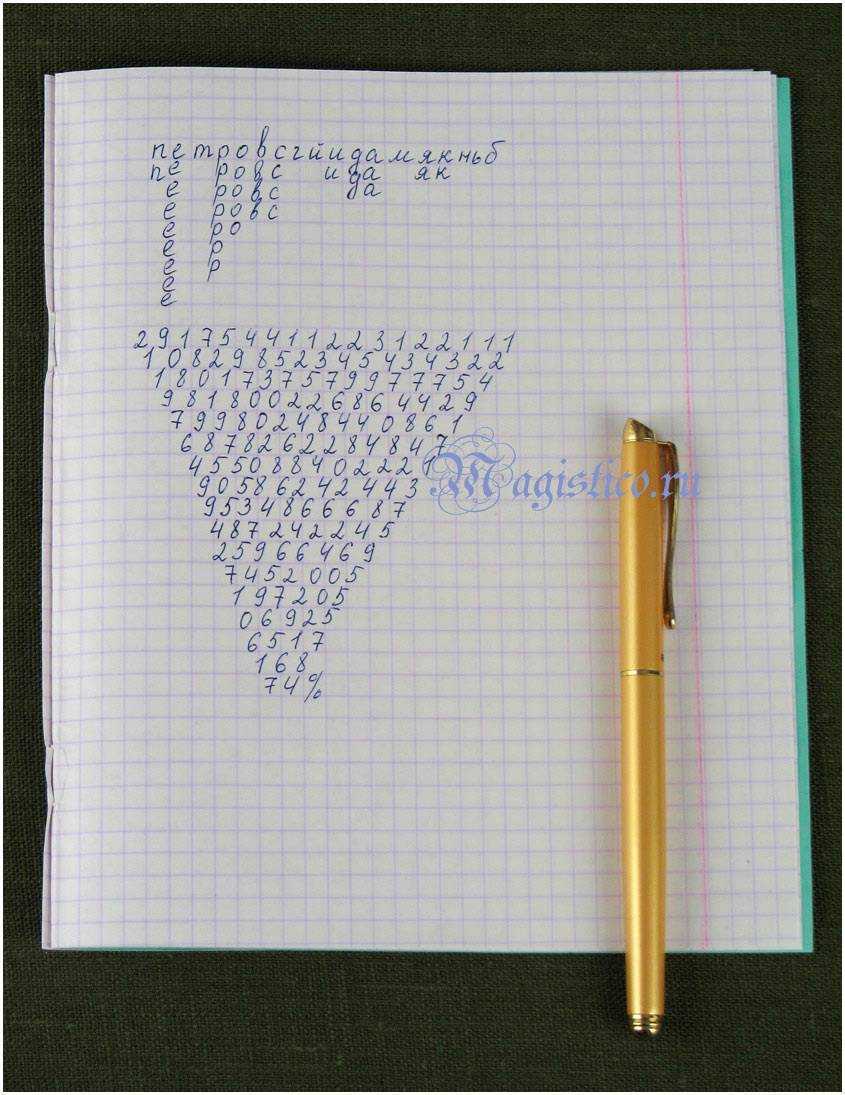 петровсгйидамякньб
пе ровс ида як
е ровс да
е ровс
е ро
е р
е р
е
е
2 9 1 7 5 4 4 1 1 2 2 3 1 2 2 1 1 1
1 0 8 2 9 8 5 2 3 4 5 4 3 4 3 2 2
1 8 0 1 7 3 7 5 7 9 9 7 7 7 5 4
9 8 1 8 0 0 2 2 6 8 6 4 4 2 9
7 9 9 8 0 2 4 8 4 4 0 8 6 1
6 8 7 8 2 6 2 2 8 4 8 4 7
4 5 5 0 8 8 4 0 2 2 2 1
9 0 5 8 6 2 4 2 4 4 3
Magistico.ru
9 5 3 4 8 6 6 6 8 7
4 8 7 2 4 2 2 4 5
2 5 9 6 6 4 6 9
7 4 5 2 0 0 5
1 9 7 2 0 5
0 6 9 2 5
6 5 1 7
1 6 8
7 4 %